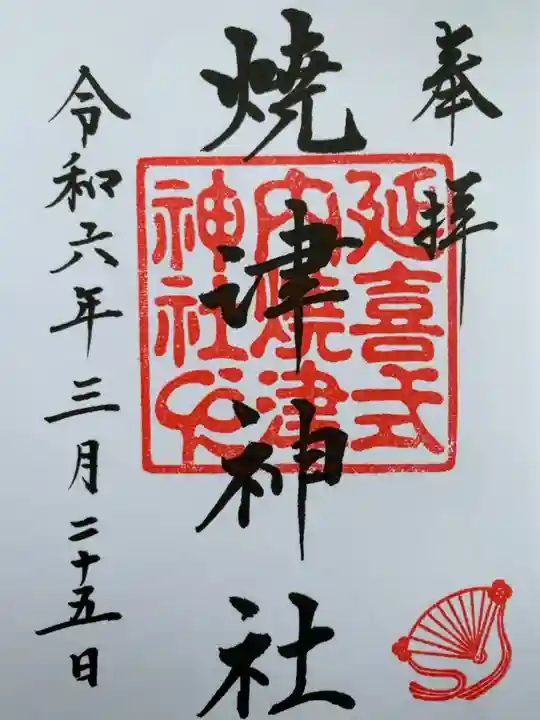 奉拝
燒津神社
延喜式
内燒津
神社之印
令和六年三月二十五日